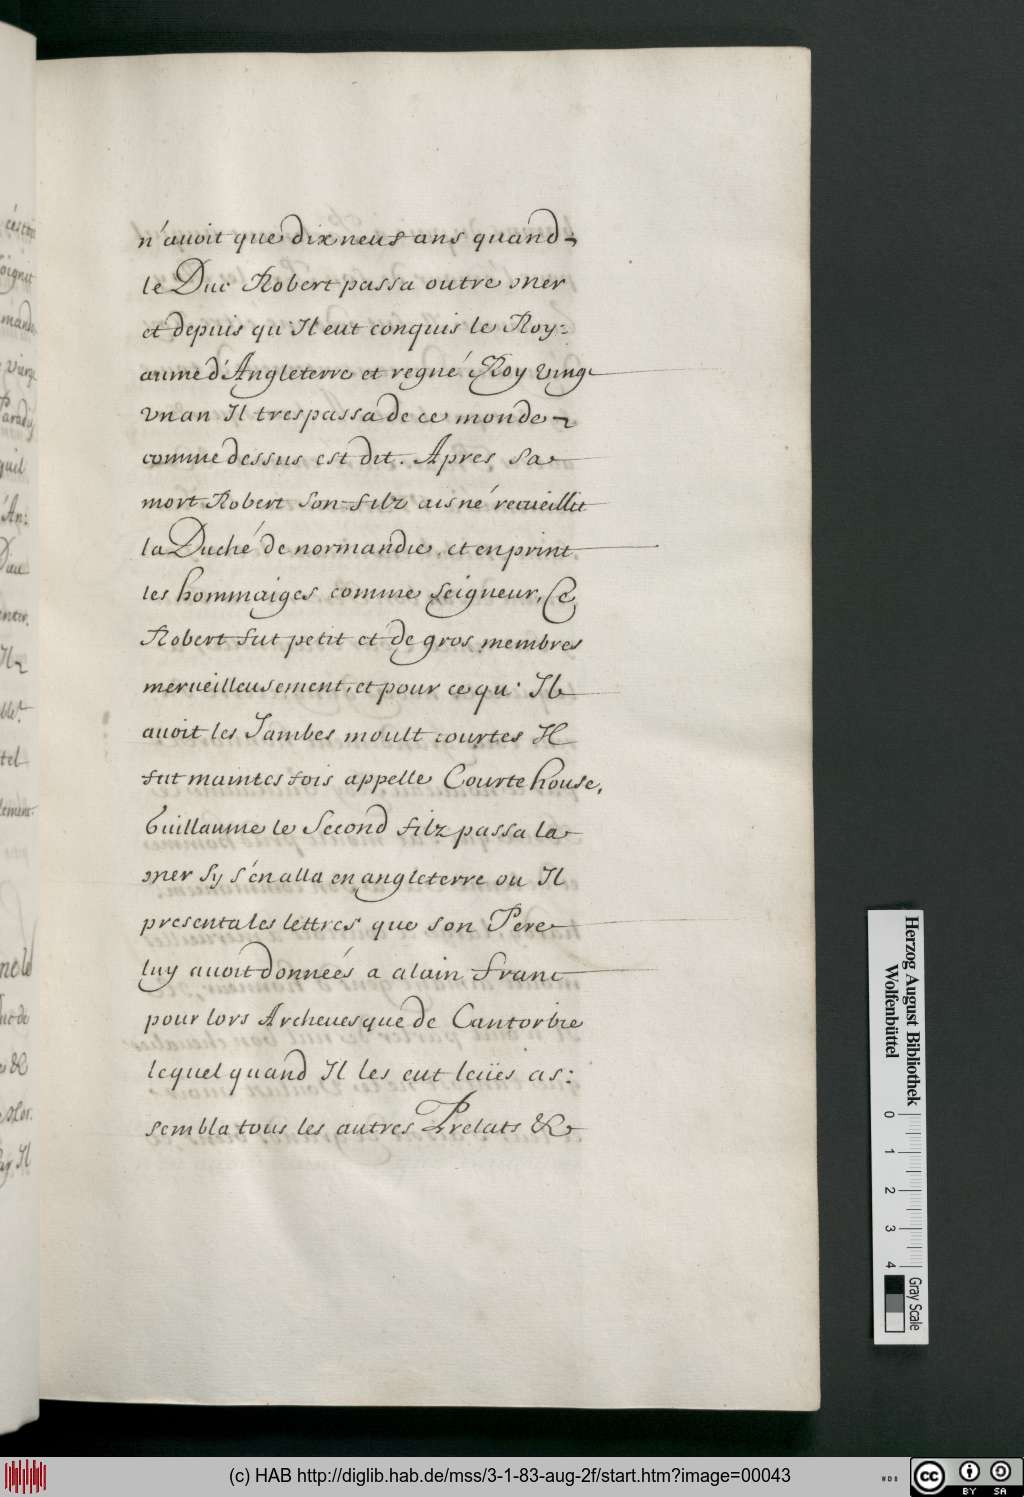 n'auoit que dix neuf ans quand
le Duc Robert passa outre mer
et depuis qu'Il eut conquis le Roy:
aume d'Angleterre et regné Roy vingt
vn an Il trespassa de ce monde
comme dessus est dit. Apres sa
mort Robert son filz aisné recueillit
la Duché de normandie, et en print
les hommaiges comme seigneur, Ce
Robert fut petit et de gros membres
merueilleusement, et pour ce qu'Il
auoit les Jambes moult courtes Il
fut maintes fois appelle Courte house,
Guillaume le Second filz passa la
mer sy s'én alla en angleterre ou Il
presenta les lettres que son Pere
luy auoit données a alain franc
pour lors Archeuesque de Cantorbie
lequel quand Il les eut leües as:
sembla tous les autres Prelats &
Herzog August Bibliothek
Wolfenbüttel
0 1 2 3 4
Gray Scale
(c) HAB http://diglib.hab.de/mss/3-1-83-aug-2f/start.htm?image=00043
cc BY SA